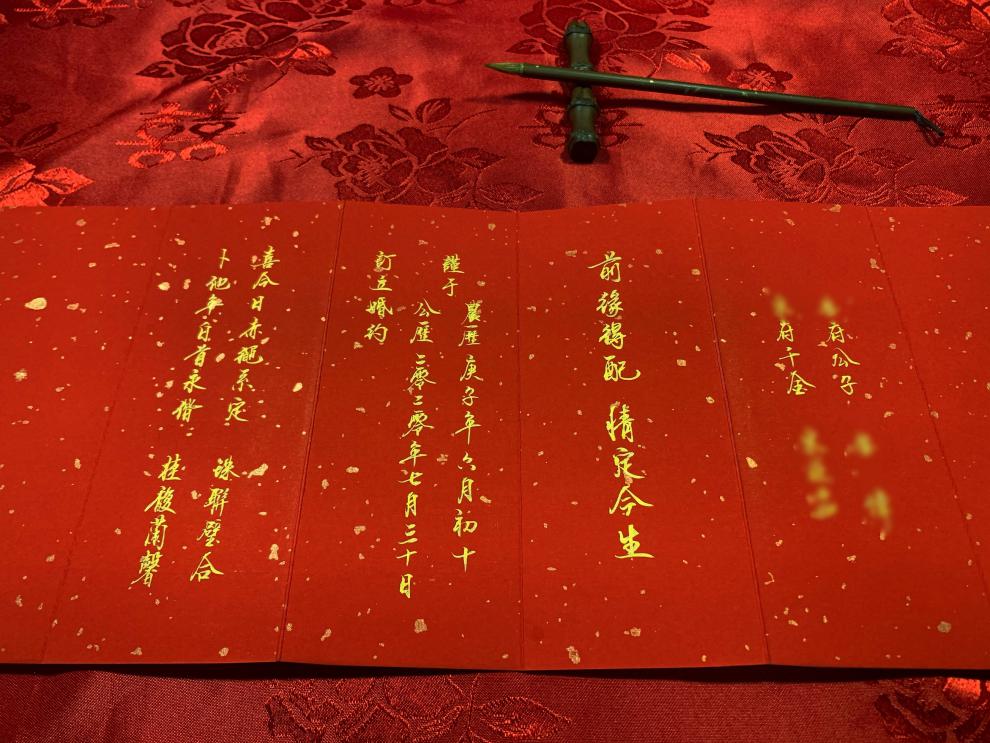 府公子
府千金
前缘得配 情定今生
谨于
農曆庚子年六月初十
公曆二零二零年七月三十日
訂立婚约
喜今日赤繩系定 珠聯璧合
卜他年白首永偕 桂馥蘭馨